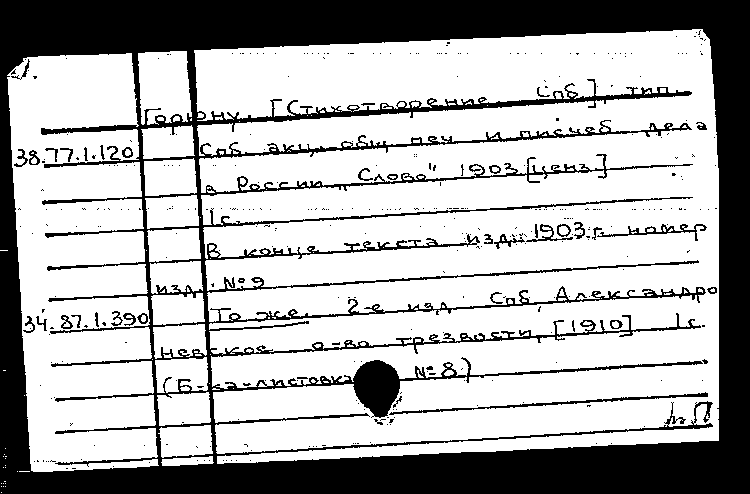 Горюну. [Стихотворение. Спб], тип.
38.77.1.120 Спб акц. общ. печ. и писчеб дела
в России „Слово", 1903 [ценз.]
1с.
В конце текста изд.: 1903 г. номер
изд. №9
34.87.1.390 То же. 2-е изд. Спб, Александро
невское о-во трезвости, [1910] 1с.
(Б-ка-листовка №8)